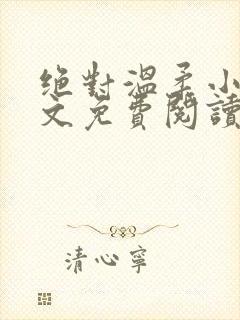 絕對溫柔小
文免費閱讀
清心寧